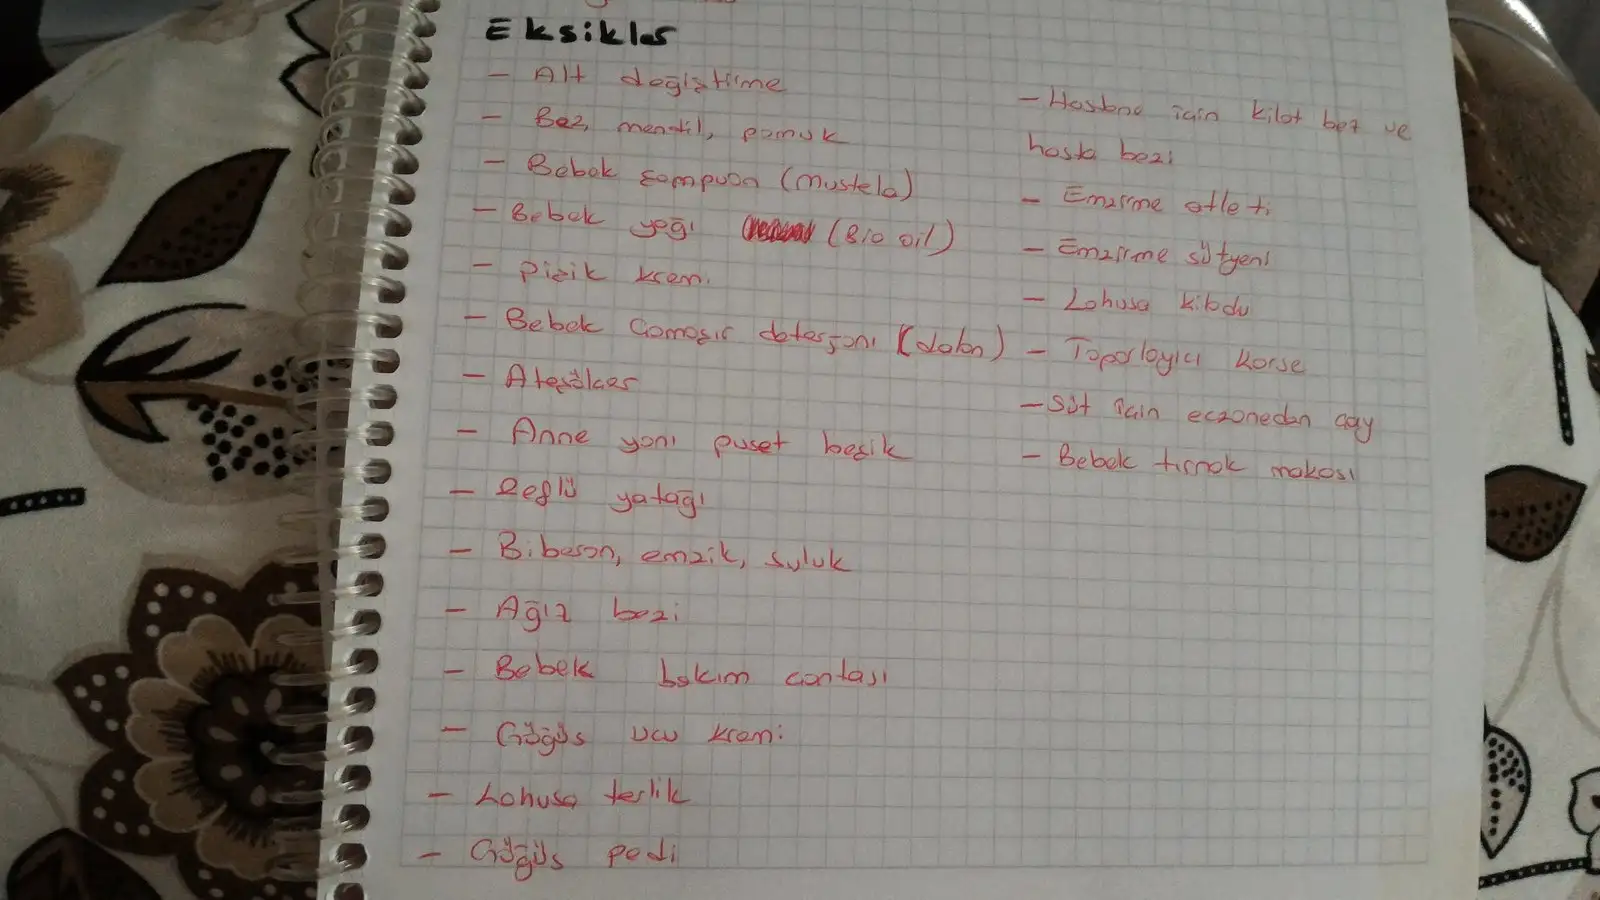 Eksikler
- Alt değiştirme
- Bez, mendil, pamuk
- Bebek şampuan (mustela)
- Bebek yağı (Bio oil)
- pişik krem
- Bebek Çamaşır deterjanı (dalan)
- Ateşölçer
- Anne yanı puset beşik
- Reflü yatağı
- Biberon, emzik, suluk
- Ağız bezi
- Bebek bakım çantası
- Göğüs ucu kremi
- Lohusa terlik
- Göğüs pedi
- Hastane için kilot bez ve
hasta bezi
- Emzirme atleti
- Emzirme sütyeni
- Lohusa kilodu
- Toparlayıcı korse
- Süt için eczaneden çay
- Bebek tırnak makası